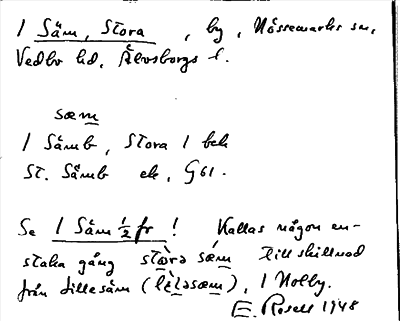 1 Säm, Stora , by, Nössemarks sn,
Vedbo hd, Älvsborgs l.
sæm
1 Sämb, Stora 1 beb
St. Sämb ek, G61.
Se 1 Säm ½ fr ! Kallas någon en-
staka gång stòrə sǽm till skillnad
från Lillesäm (lìləsæm), 1 Nolby.
E. Rosell 1948